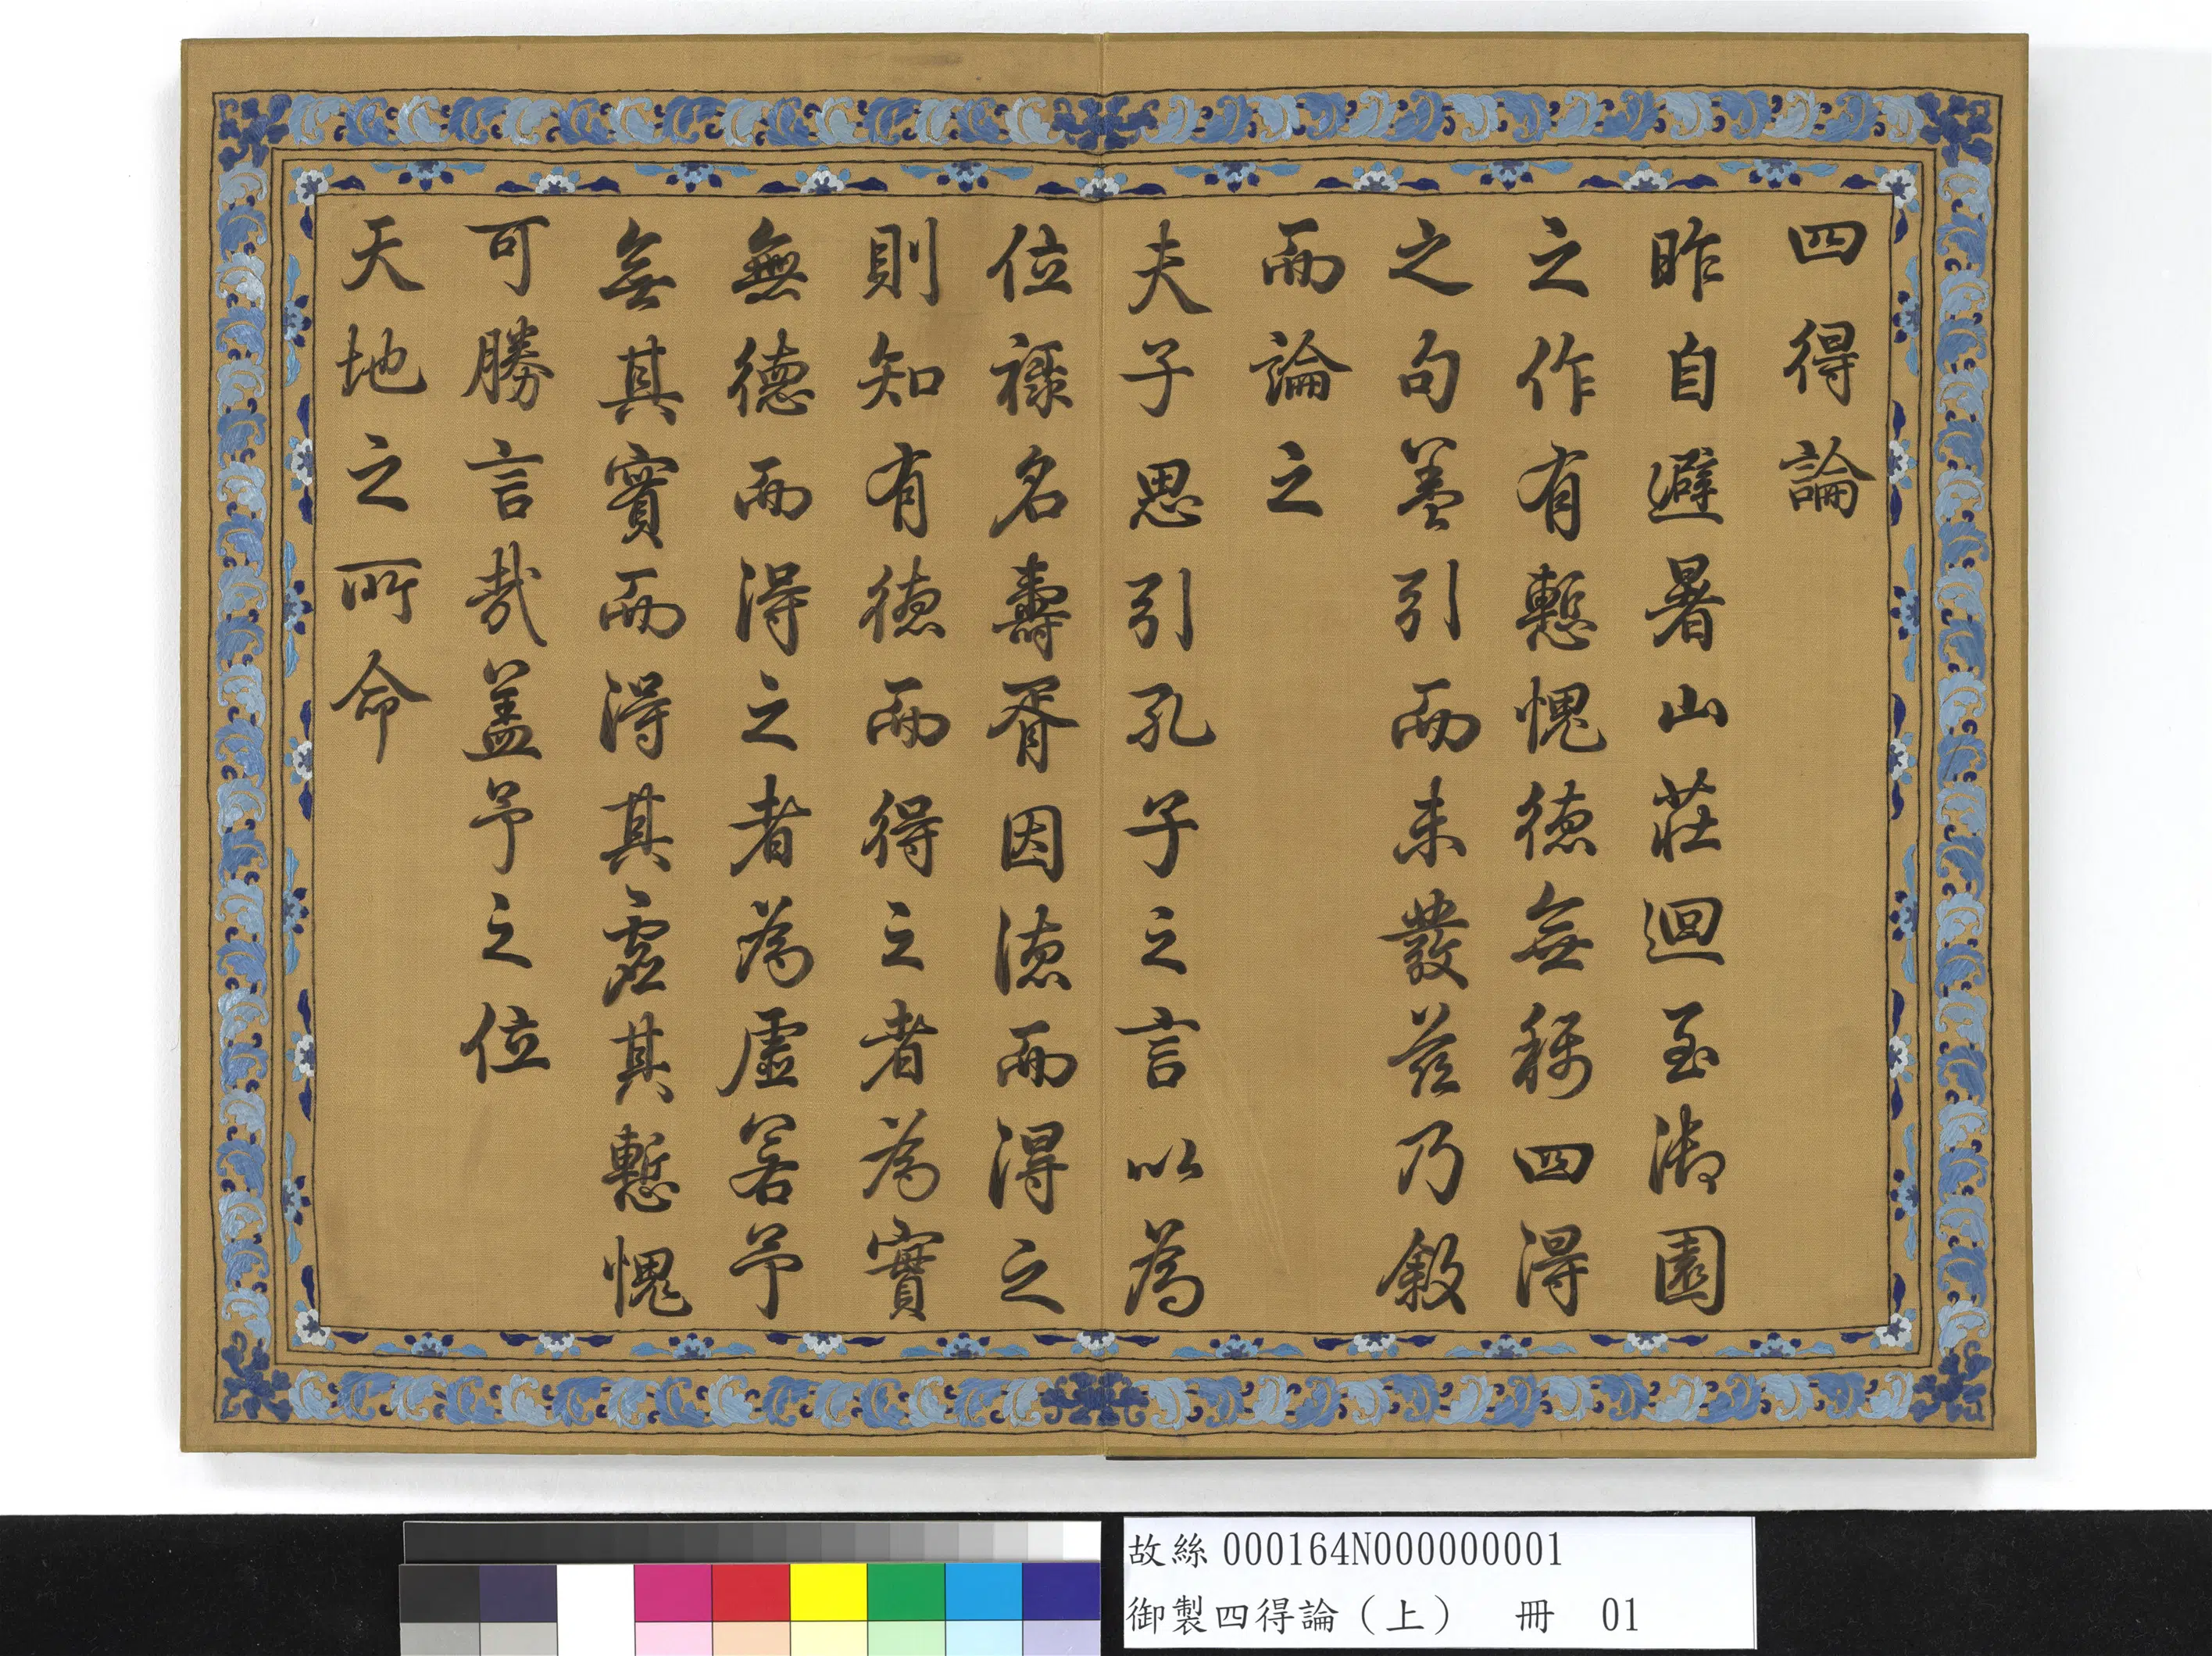 四得論
昨自避暑山莊迴至御園
之作有慙愧德無稱四得
之句蓋引而未發茲乃敘
而論之
夫子思引孔子之言以為
位祿名壽胥因德而得之
則知有德而得之者為實
無德而得之者為虛若予
無其實而得其虛其慙愧
可勝言哉蓋予之位
天地之所命
故絲000164N000000001
御製四得論（上） 冊 01